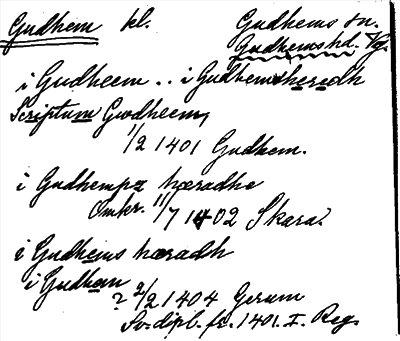 Gudhem kl. Gudhems sn.
Gudhems hd. Vg.
i Gudheem .. i Gudhemsheradh
Scriptum Gwdheem,
1/2 1401 Gudhem.
i Gudhempz hæradhe
Omkr. 11/7 1402 Skara?
i Gudhems hæradh
i Gudhem
? 2/2 1404 Gerum
Sv. dipl. fr. 1401. I. Reg.